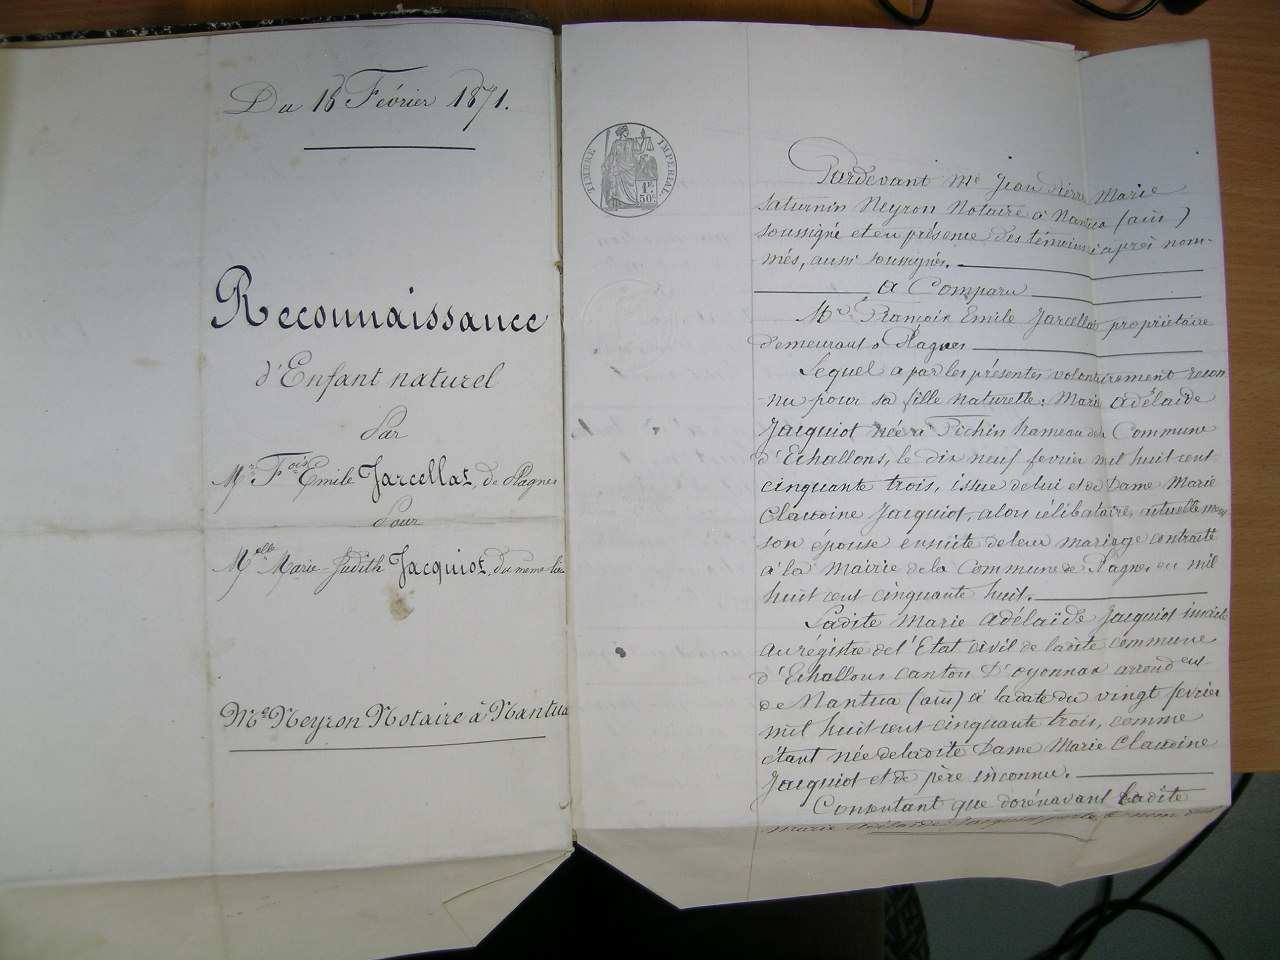 Du 18 Février 1871.
Reconnaissance
d'Enfant naturel
Par
Mr. Fois Emile Jarcellat, de Plagnes
Pour
Melle Marie-Judith Jacquiot, du même lieu
Me Neyron Notaire à Nantua
TIMBRE IMPERIAL
1F 50c
Pardevant Me Jean Pierre Marie
Saturnin Neyron Notaire à Nantua (ain)
soussigné et en présence des témoins ci après nom-
més, aussi soussignés.
a Comparu
Mr. François Emile Jarcellat propriétaire
demeurant à Plagnes
Lequel a par les présentes volontairement recon
-nu pour sa fille naturelle: Marie adélaide
Jacquiot née à Pichin hameau de la Commune
d'Echallons, le dix neuf fevrier mil huit cent
cinquante trois, issue de lui et de Dame Marie
Claudine Jacquiot, alors célibataire, actuellement
son épouse ensuite de leur mariage contracté
à la mairie de la Commune de Plagnes en mil
huit cent cinquante huit.
Ladite Marie adélaïde Jacquiot inscrite
au régistre de l'Etat civil de ladite commune
d'Echallons canton D'oyonnax arrondent
de Nantua (ain) à la date du vingt fevrier
mil huit cent cinquante trois, comme
étant née de ladite Dame Marie Claudine
Jacquiot et de père inconnu.
Consentant que dorénavant ladite
Marie adélaïde Jacquiot porte le nom